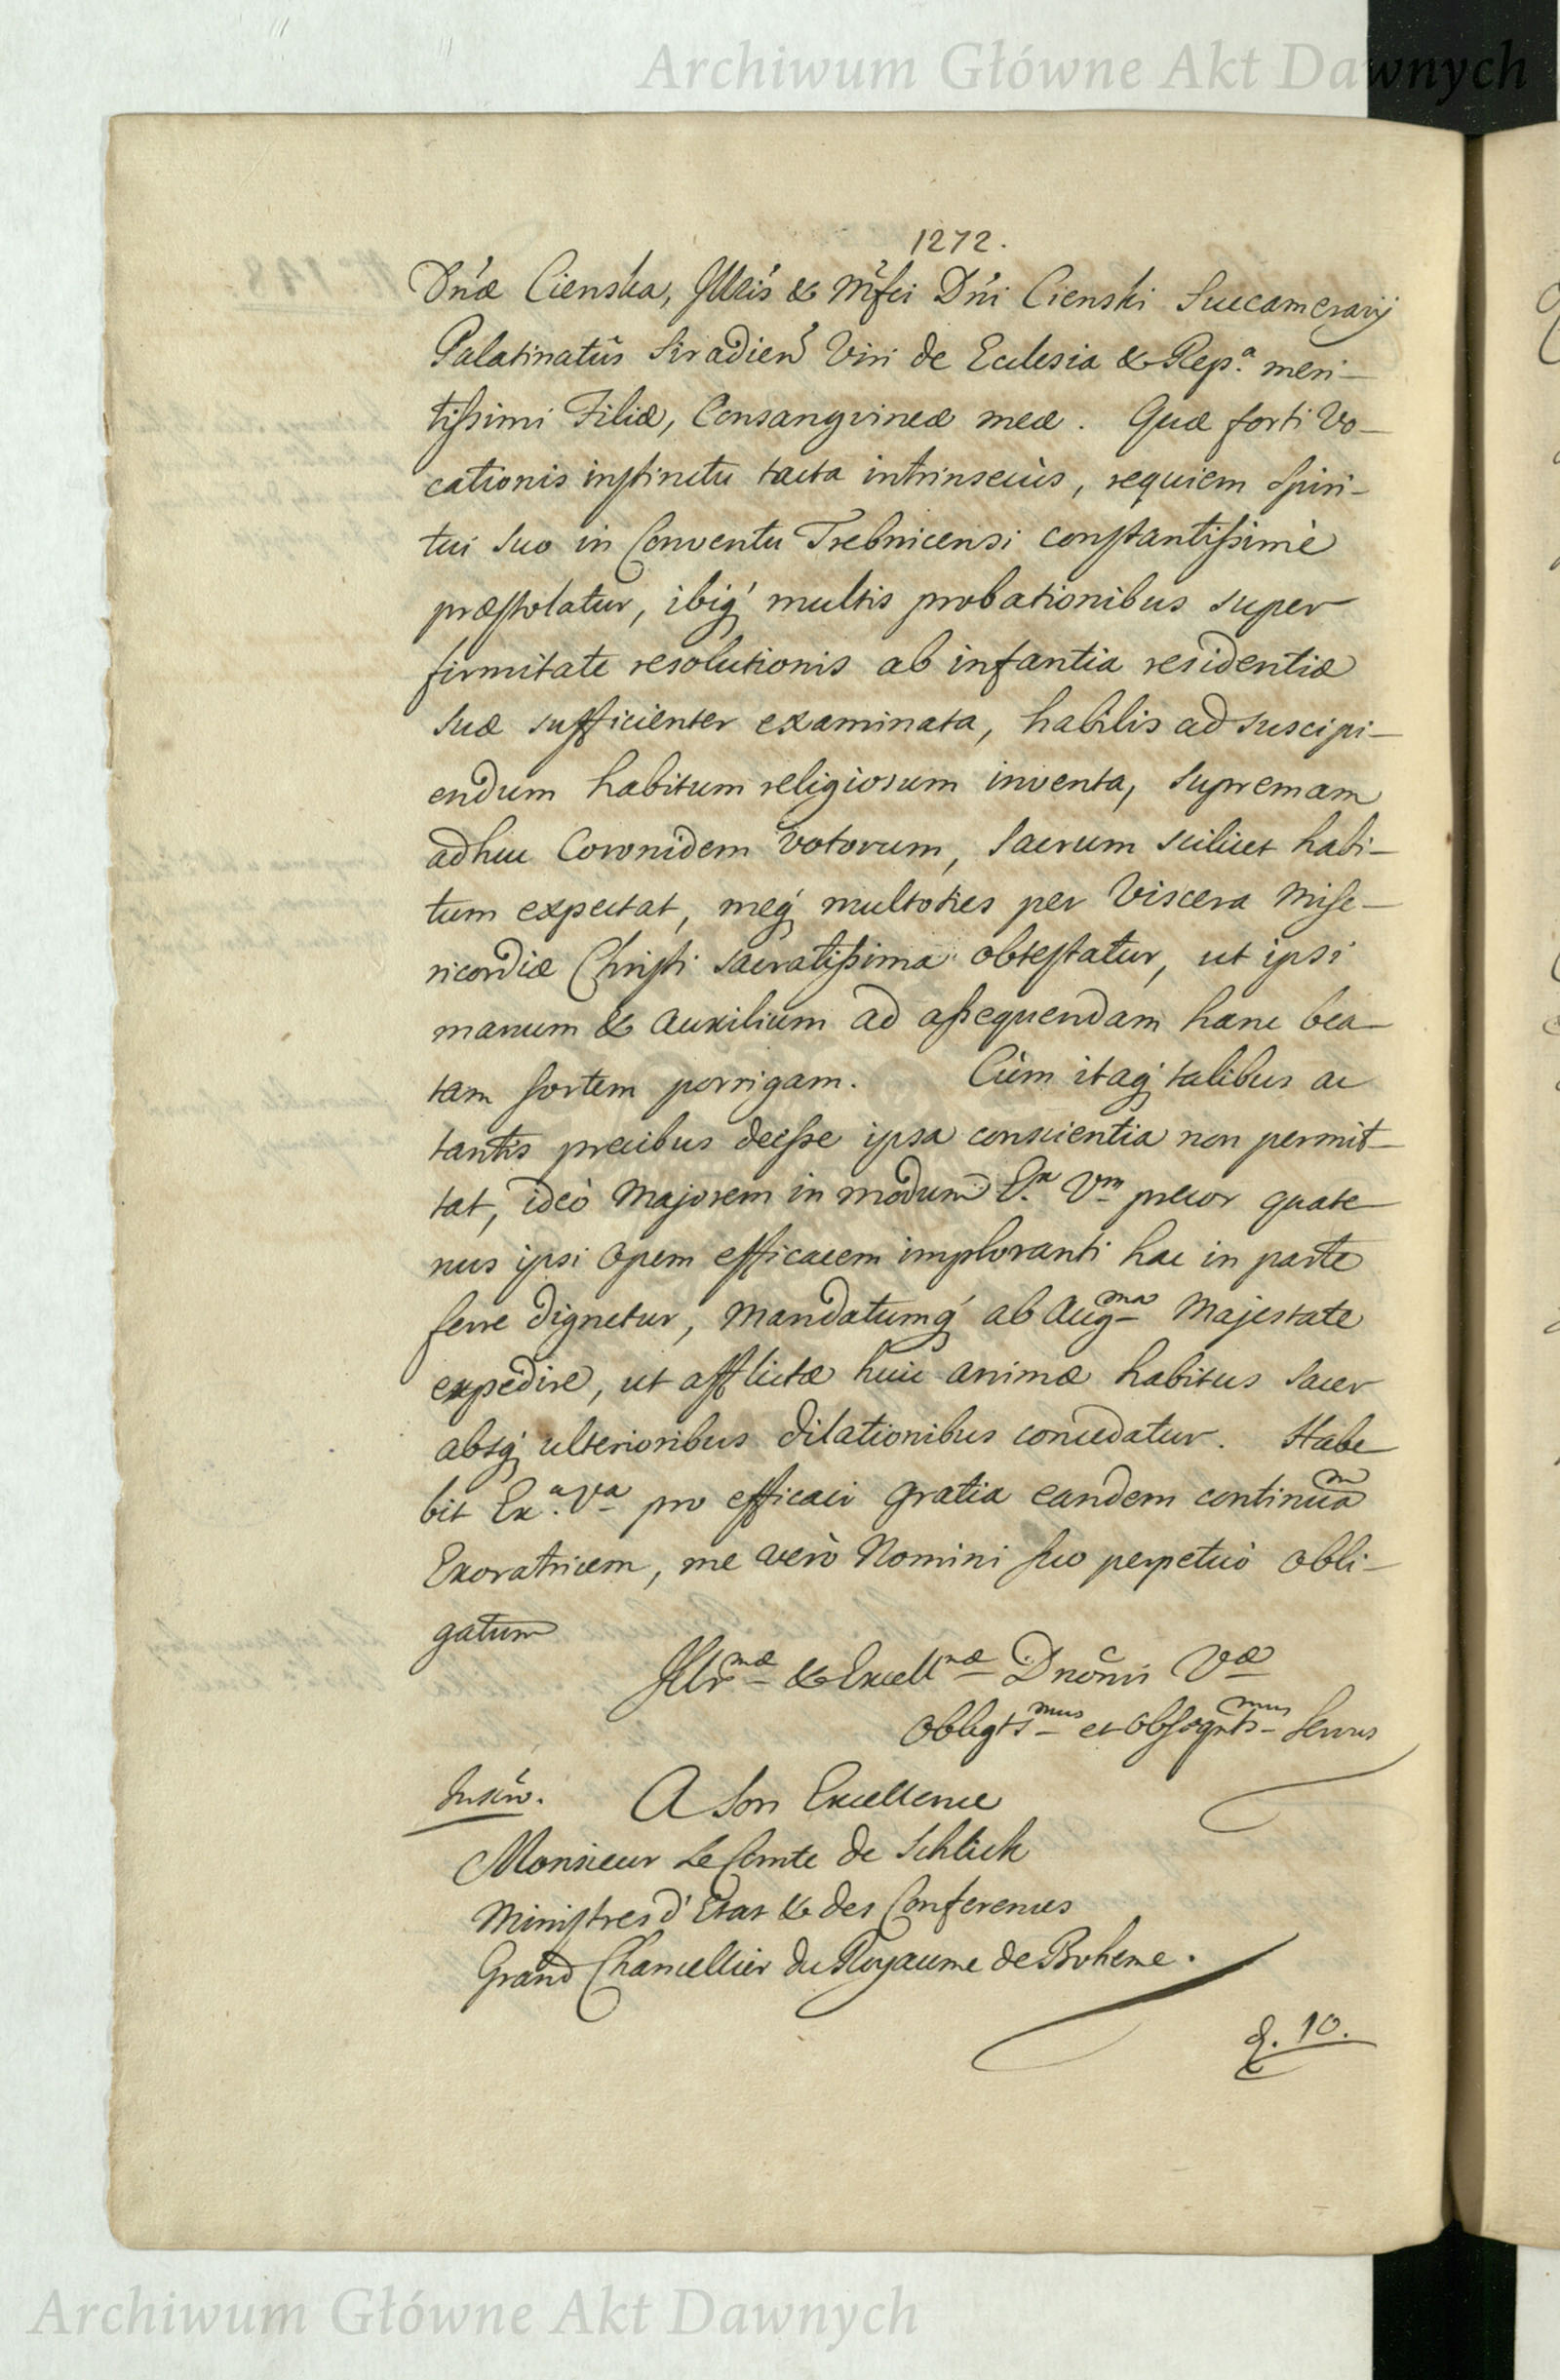 Archiwum Główne Akt Dawnych
1272.
Dn̄æ Cienska, Jllris & Mfci Dn̄i Cienski Succamerarij
Palatinatûs Siradien̄ Viri de Ecclesia & Rep.ª meri-
tissimi Filiæ, Consangvineæ meæ. Quæ forti Vo-
cationis instinctu tacta intrinsecùs, requiem Spiri-
tui suo in Conventu Trebnicensi constantissimè
præstolatur, ibiq́ multis probationibus super
firmitate resolutionis ab infantia residentiæ
suæ sufficienter examinata, habilis ad suscipi-
endum habitum religiosum inventa, supremam
adhuc Coronidem votorum, Sacrum scilicet habi-
tum expectat, meq́ multoties per Viscera Mise-
ricordiæ Christi sacratissima obtestatur, ut ipsi
manum & auxilium ad assequendam hanc bea-
tam sortem porrigam. Cùm itaq́ talibus ac
tantis precibus deesse ipsa conscientia non permit-
tat, ideò Majorem in modum E.ᵃ Vᵐ precor quate
nus ipsi Opem efficacem imploranti hac in parte
ferre dignetur, Mandatumq́ ab Augᵐᵃ Majestate
expedire, ut afflictæ huic animæ habitus sacer
absq́ ulterioribus dilationibus concedatur. Habe
bit Ex.ᵃ Vᵃ pro efficaci gratia eandem continuaᵐ
Exoratricem, me verò Nomini suo perpetuò obli-
gatum
Jllrᵐæ & Excellᵐæ Dnōnis Væ
Obligtsᵐᵘˢ et Obseqntsᵐᵘˢ Servus
Inscrō. A Son Excellence
Monsieur Le Comte de Schlick
Ministres d'Etat & des Conferences
Grand Chancellier du Royaume de Boheme.
E. 10.
Archiwum Główne Akt Dawnych